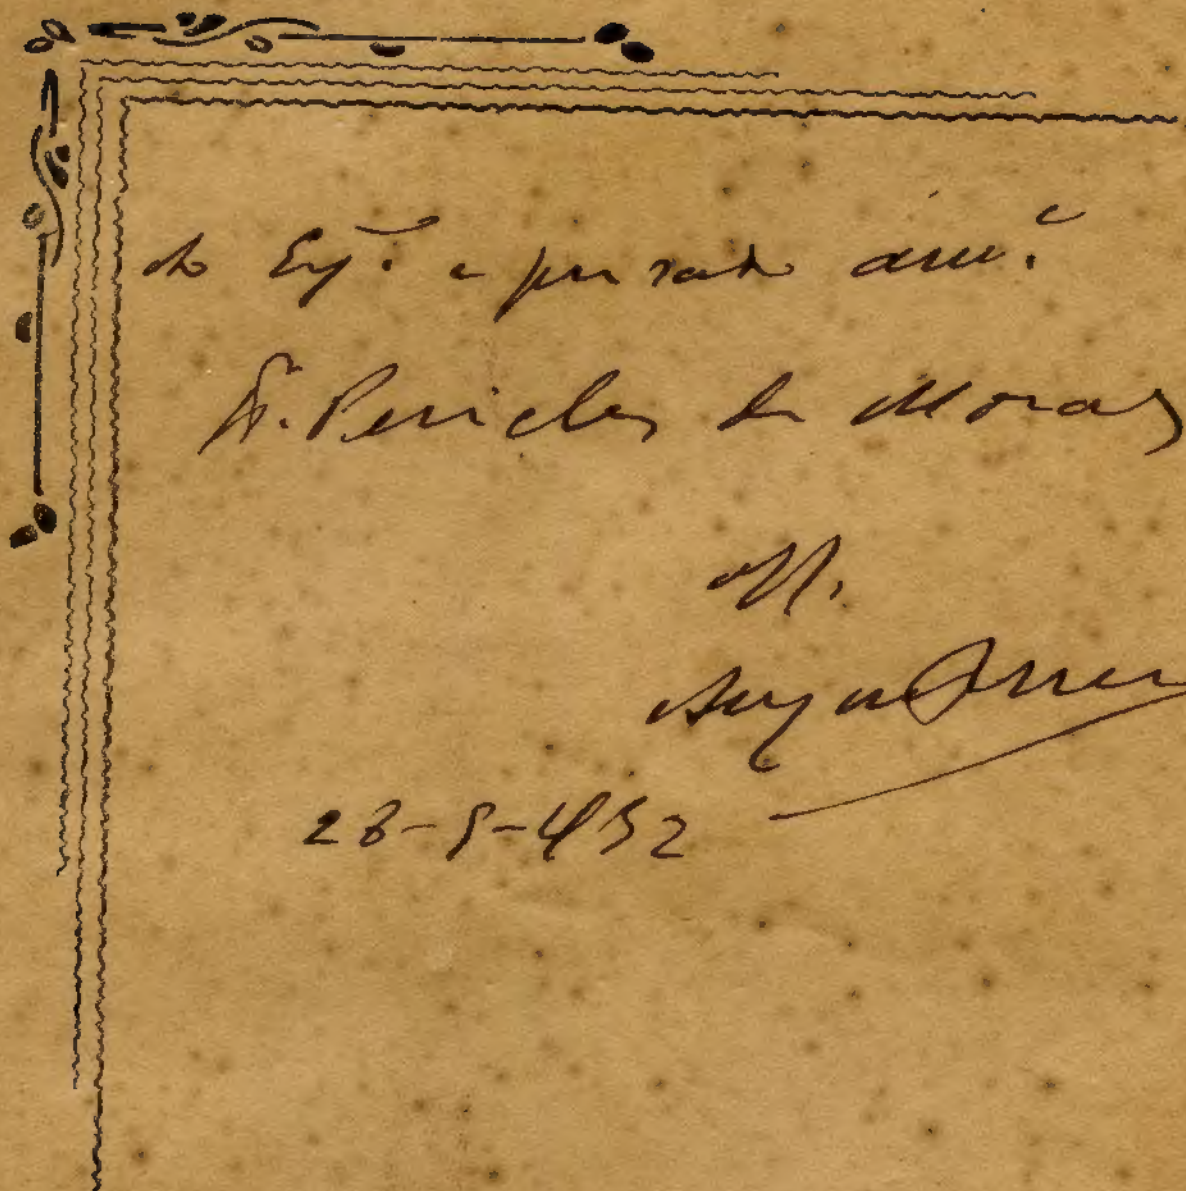 Ao Exº e prezado amº
Dr. Pericles de Moraes
Of.
28-5-952